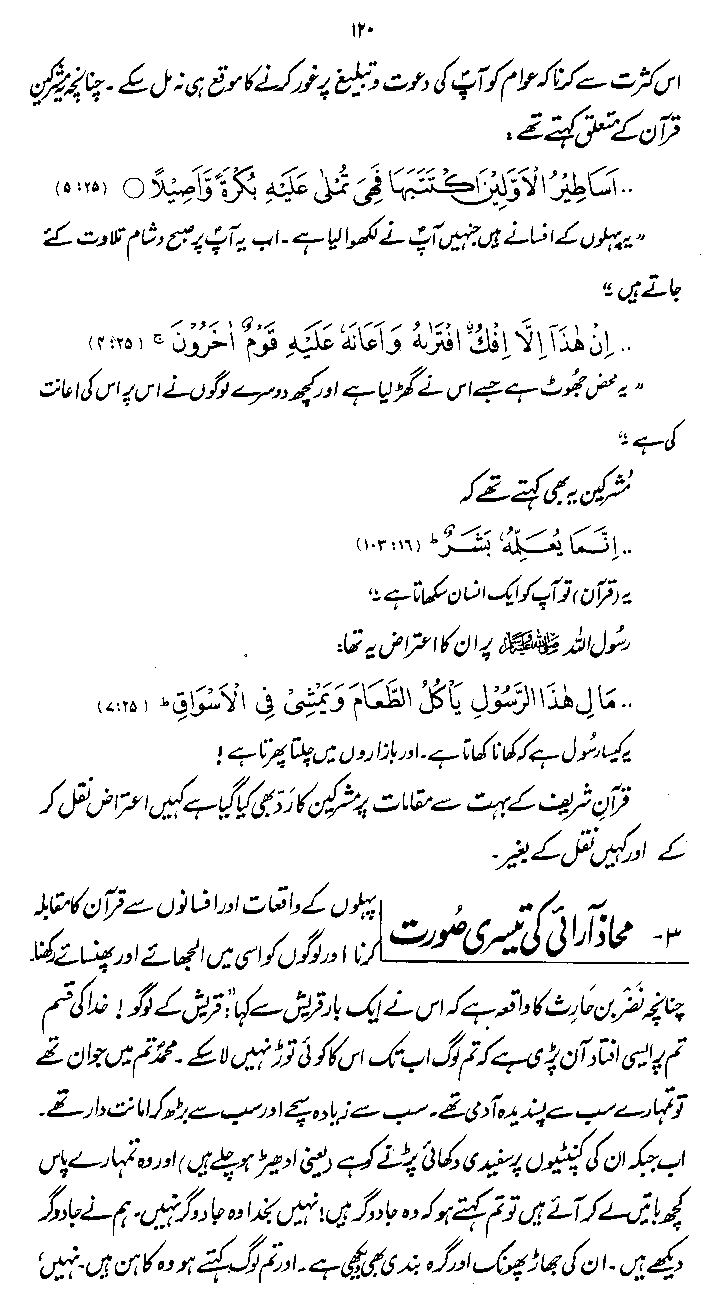 ۱۲۰
اس کثرت سے کرنا کہ عوام کو آپؐ کی دعوت و تبلیغ پر غور کرنے کا موقع ہی نہ مل سکے ۔ چنانچہ مشرکین
قرآن کے متعلق کہتے تھے :
.. اَسَاطِيْرُ الْاَوَّلِيْنَ اكْتَتَبَهَا فَهِيَ تُمْلٰى عَلَيْهِ بُكْرَةً وَّاَصِيْلًا ○ (۵:۲۵)
” یہ پہلوں کے افسانے ہیں جنہیں آپؐ نے لکھوا لیا ہے ۔ اب یہ آپؐ پر صبح و شام تلاوت کئے
جاتے ہیں ۔“
.. اِنْ هٰذَآ اِلَّا اِفْكُ ۨافْتَرٰىهُ وَاَعَانَهٗ عَلَيْهِ قَوْمٌ اٰخَرُوْنَ ج (۴:۲۵)
” یہ محض جھوٹ ہے جسے اس نے گھڑ لیا ہے اور کچھ دوسرے لوگوں نے اس پر اس کی اعانت
کی ہے ۔“
مُشرکین یہ بھی کہتے تھے کہ
.. اِنَّمَا يُعَلِّمُهٗ بَشَرٌ ط (۱۰۳:۱۶)
یہ (قرآن) تو آپ کو ایک انسان سکھاتا ہے ۔“
رسُول اللہ ﷺ پر ان کا اعتراض یہ تھا:
.. مَالِ هٰذَا الرَّسُوْلِ يَاْكُلُ الطَّعَامَ وَيَمْشِيْ فِي الْاَسْوَاقِ ط (۷:۲۵)
یہ کیسا رسول ہے کہ کھانا کھاتا ہے ۔ اور بازاروں میں چلتا پھرتا ہے !
قرآن شریف کے بہت سے مقامات پر مشرکین کا رَدّ بھی کیا گیا ہے کہیں اعتراض نقل کر
کے اور کہیں نقل کے بغیر ۔
۳- محاذ آرائی کی تیسری صُورت
پہلوں کے واقعات اور افسانوں سے قرآن کا مقابلہ
کرنا اور لوگوں کو اسی میں الجھائے اور پھنسائے رکھنا۔
چنانچہ نَضْر بن حارِث کا واقعہ ہے کہ اس نے ایک بار قریش سے کہا: ”قریش کے لوگو ! خدا کی قسم
تم پر ایسی افتاد آن پڑی ہے کہ تم لوگ اب تک اس کا کوئی توڑ نہیں لا سکے ۔ محمدؐ تم میں جوان تھے
تو تمہارے سب سے پسندیدہ آدمی تھے ۔ سب سے زیادہ سچے اور سب سے بڑھ کر امانت دار تھے ۔
اب جبکہ ان کی کنپٹیوں پر سفیدی دکھائی پڑنے کو ہے (یعنی ادھیڑ ہو چلے ہیں) اور وہ تمہارے پاس
کچھ باتیں لے کر آئے ہیں تو تم کہتے ہو کہ وہ جادوگر ہیں! نہیں بخدا وہ جادوگر نہیں۔ ہم نے جادوگر
دیکھے ہیں ۔ ان کی جھاڑ پھونک اور گرہ بندی بھی دیکھی ہے ۔ اور تم لوگ کہتے ہو وہ کاہن ہیں ۔ نہیں،